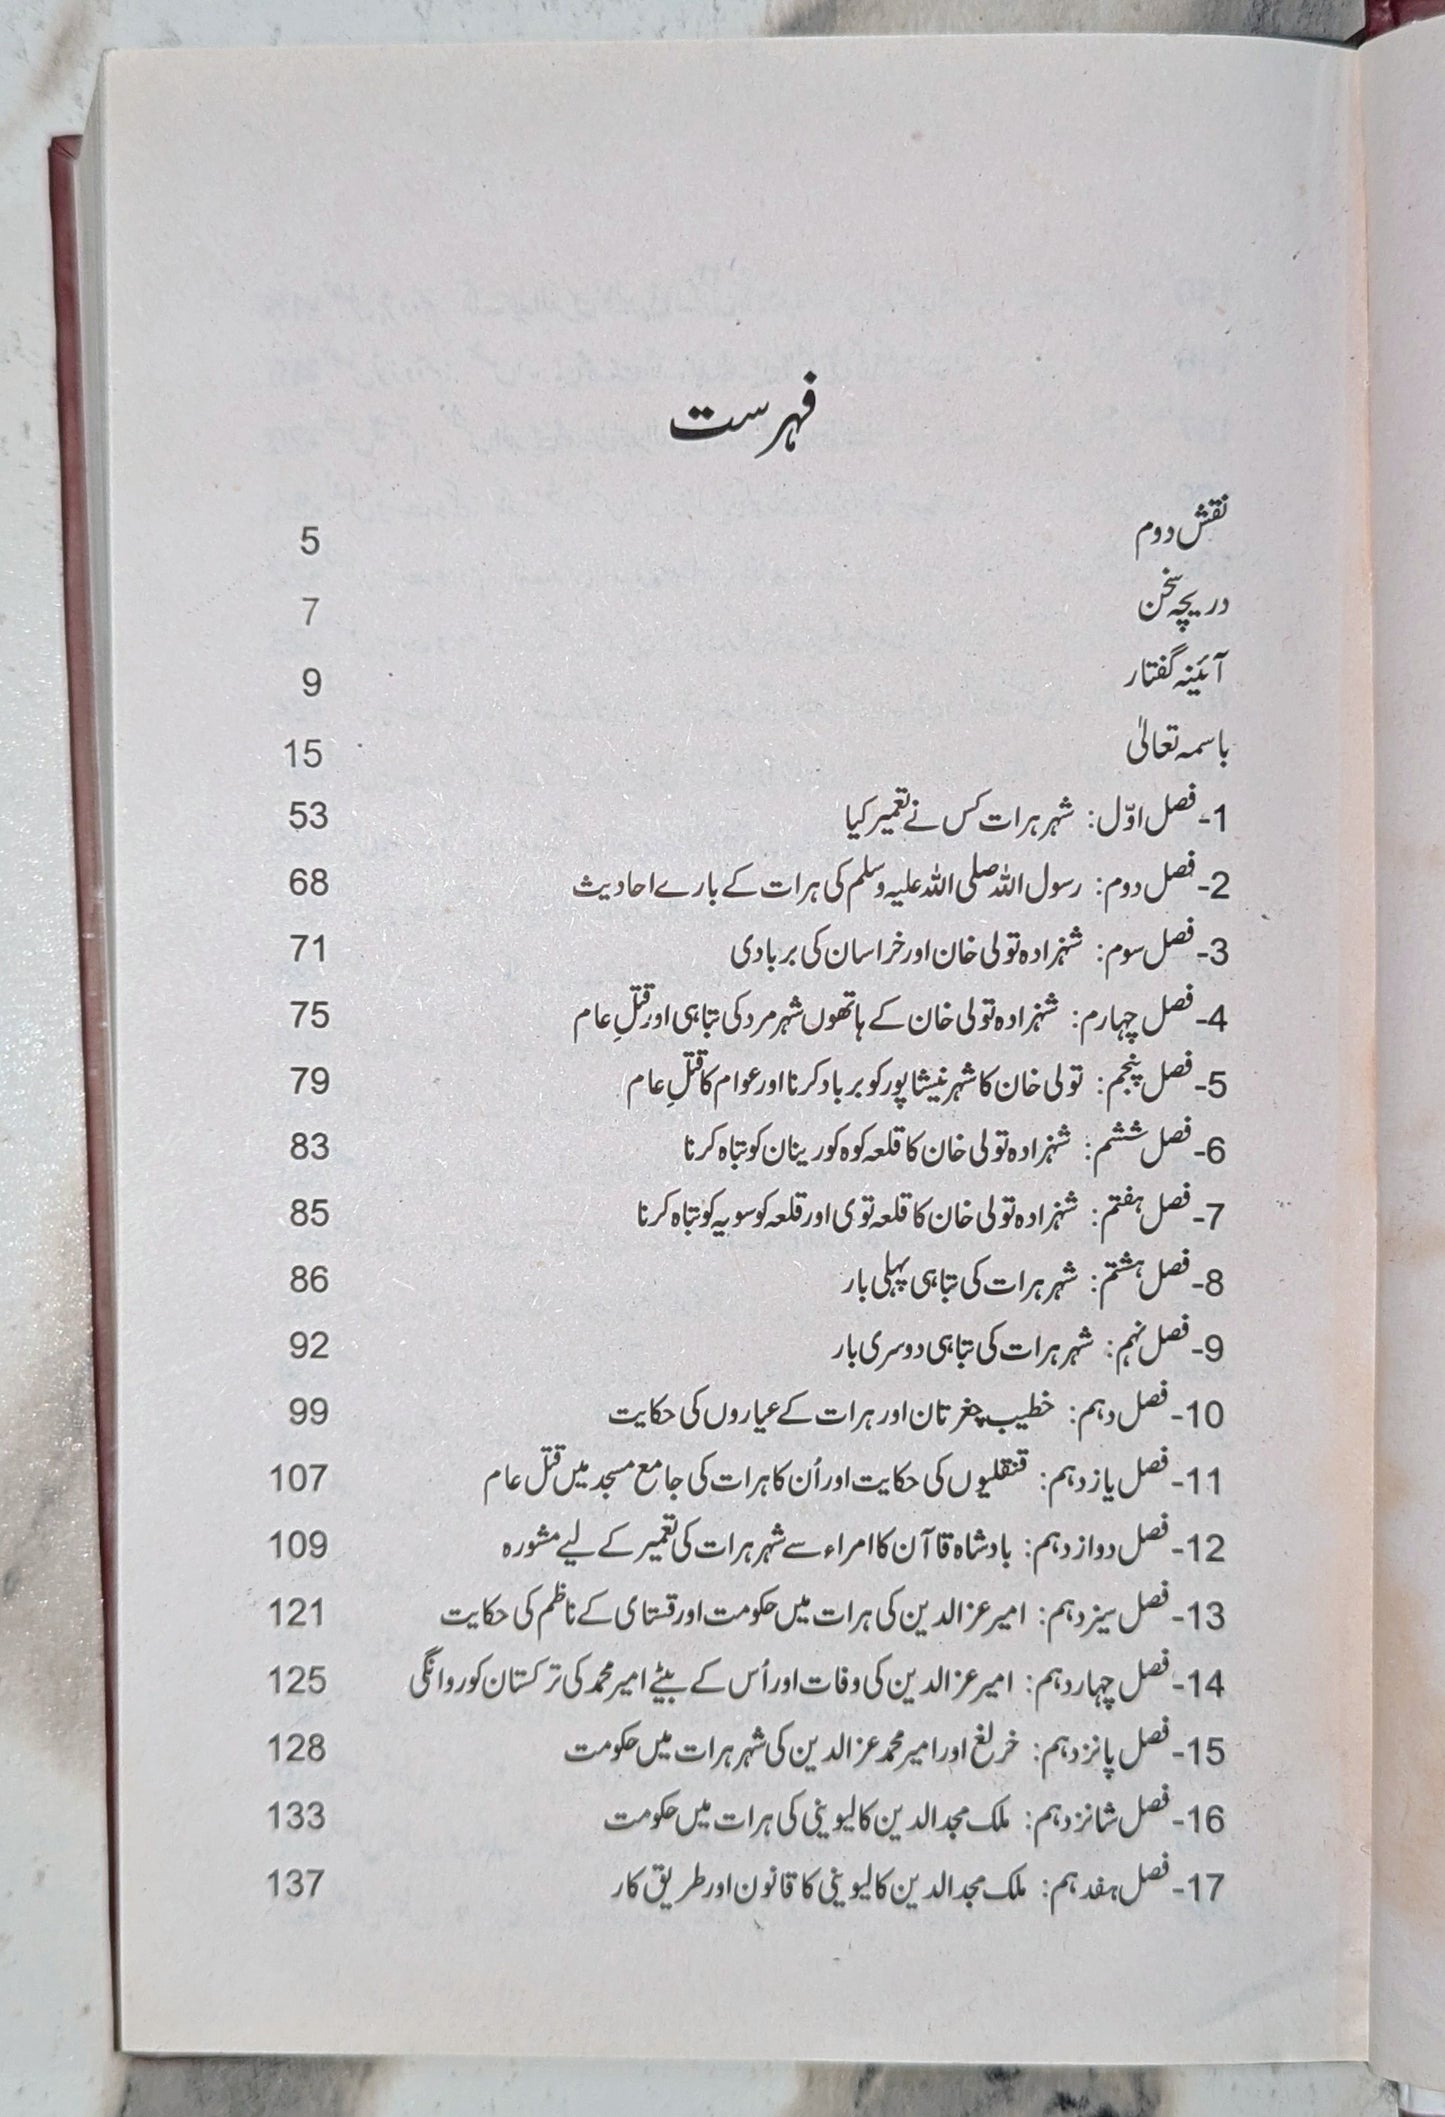 فہرست
نقش دوم 5
دریچہ سخن 7
آئینہ گفتار 9
باسمہ تعالیٰ 15
1- فصل اوّل: شہر ہرات کس نے تعمیر کیا 53
2- فصل دوم: رسول اللہ صلی اللہ علیہ وسلم کی ہرات کے بارے احادیث 68
3- فصل سوم: شہزادہ تولی خان اور خراسان کی بربادی 71
4- فصل چہارم: شہزادہ تولی خان کے ہاتھوں شہر مرد کی تباہی اور قتلِ عام 75
5- فصل پنجم: تولی خان کا شہر نیشاپور کو برباد کرنا اور عوام کا قتلِ عام 79
6- فصل ششم: شہزادہ تولی خان کا قلعہ کوہ کورینان کو تباہ کرنا 83
7- فصل ہفتم: شہزادہ تولی خان کا قلعہ توی اور قلعہ کوسویہ کو تباہ کرنا 85
8- فصل ہشتم: شہر ہرات کی تباہی پہلی بار 86
9- فصل نہم: شہر ہرات کی تباہی دوسری بار 92
10- فصل دہم: خطیب چغرتان اور ہرات کے عیاروں کی حکایت 99
11- فصل یازدہم: قنقلیوں کی حکایت اور اُن کا ہرات کی جامع مسجد میں قتل عام 107
12- فصل دوازدہم: بادشاہ قاآن کا امراء سے شہر ہرات کی تعمیر کے لیے مشورہ 109
13- فصل سیزدہم: امیر عزالدین کی ہرات میں حکومت اور قستای کے ناظم کی حکایت 121
14- فصل چہاردہم: امیر عزالدین کی وفات اور اُس کے بیٹے امیر محمد کی ترکستان کو روانگی 125
15- فصل پانزدہم: خرلغ اور امیر محمد عزالدین کی شہر ہرات میں حکومت 128
16- فصل شانزدہم: ملک مجدالدین کالیوینی کی ہرات میں حکومت 133
17- فصل ہفدہم: ملک مجدالدین کالیوینی کا قانون اور طریق کار 137